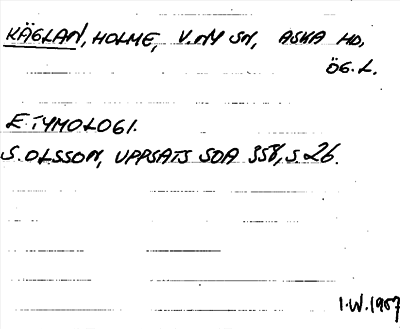 KÄGLAN, HOLME, V.NY SN, ASKA HD,
ÖG.L.
ETYMOLOGI.
S. OLSSON, UPPSATS SOA 358, S. 26.
I.W. 1957